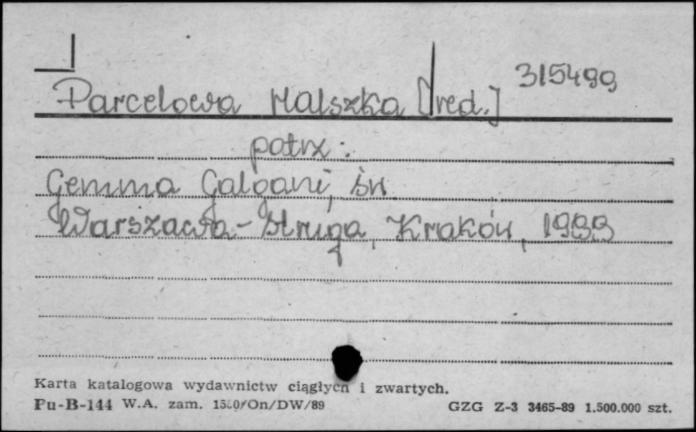 315499
Parcelowa Halszka [red.]
patrz:
Gemma Galgani, św.
Warszawa-Struga, Kraków, 1989
Karta katalogowa wydawnictw ciągłych i zwartych.
Pu-B-144 W.A. zam. /On/DW/89 GZG Z-3 3465-89 1.500.000 szt.